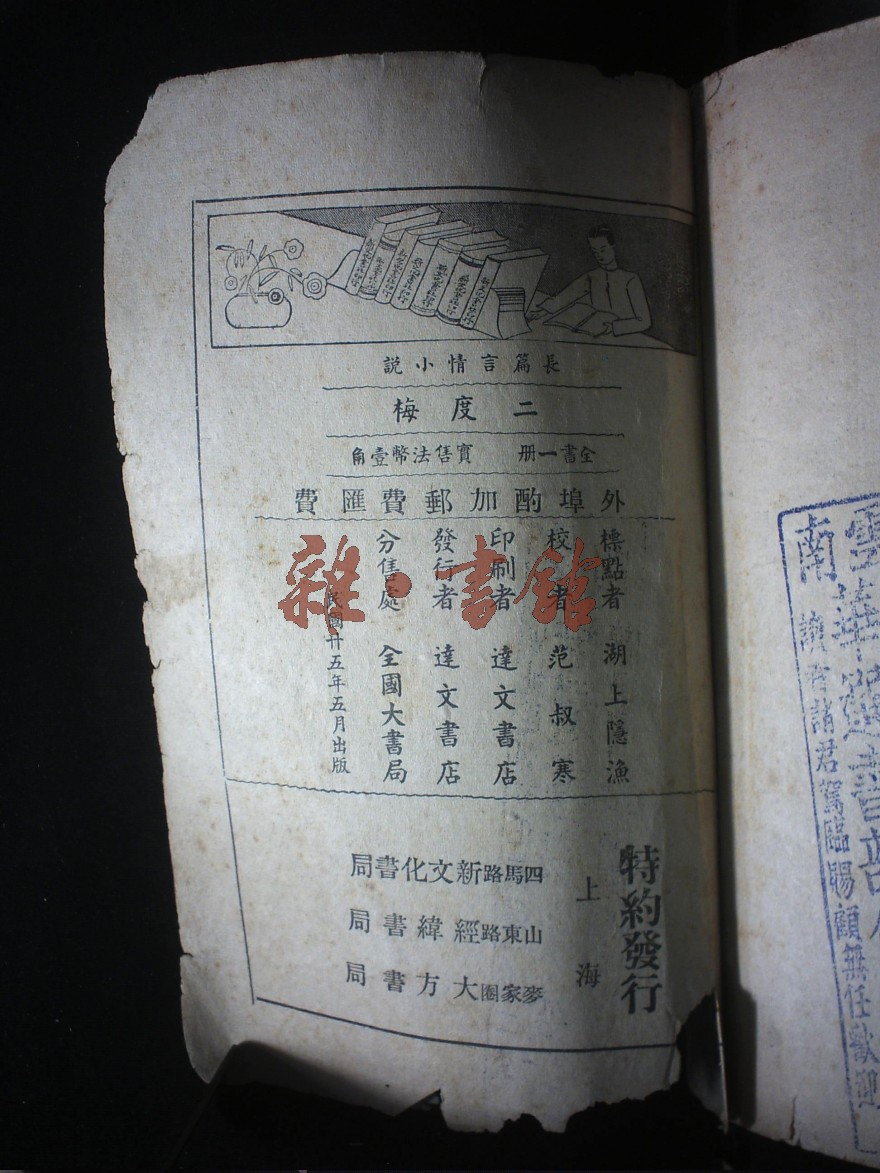 長篇言情小說
二度梅
全書一册 實售法幣壹角
外埠酌加郵費匯費
標點者 湖上隱漁
校者 范叔寒
印刷者 達文書店
發行者 達文書店
分售處 全國大書局
民國廿五年五月出版
雜·書館
特約發行
上海
四馬路新文化書局
山東路經緯書局
麥家圈大方書局
讀者諸君駕臨賜顧無任歡迎
南